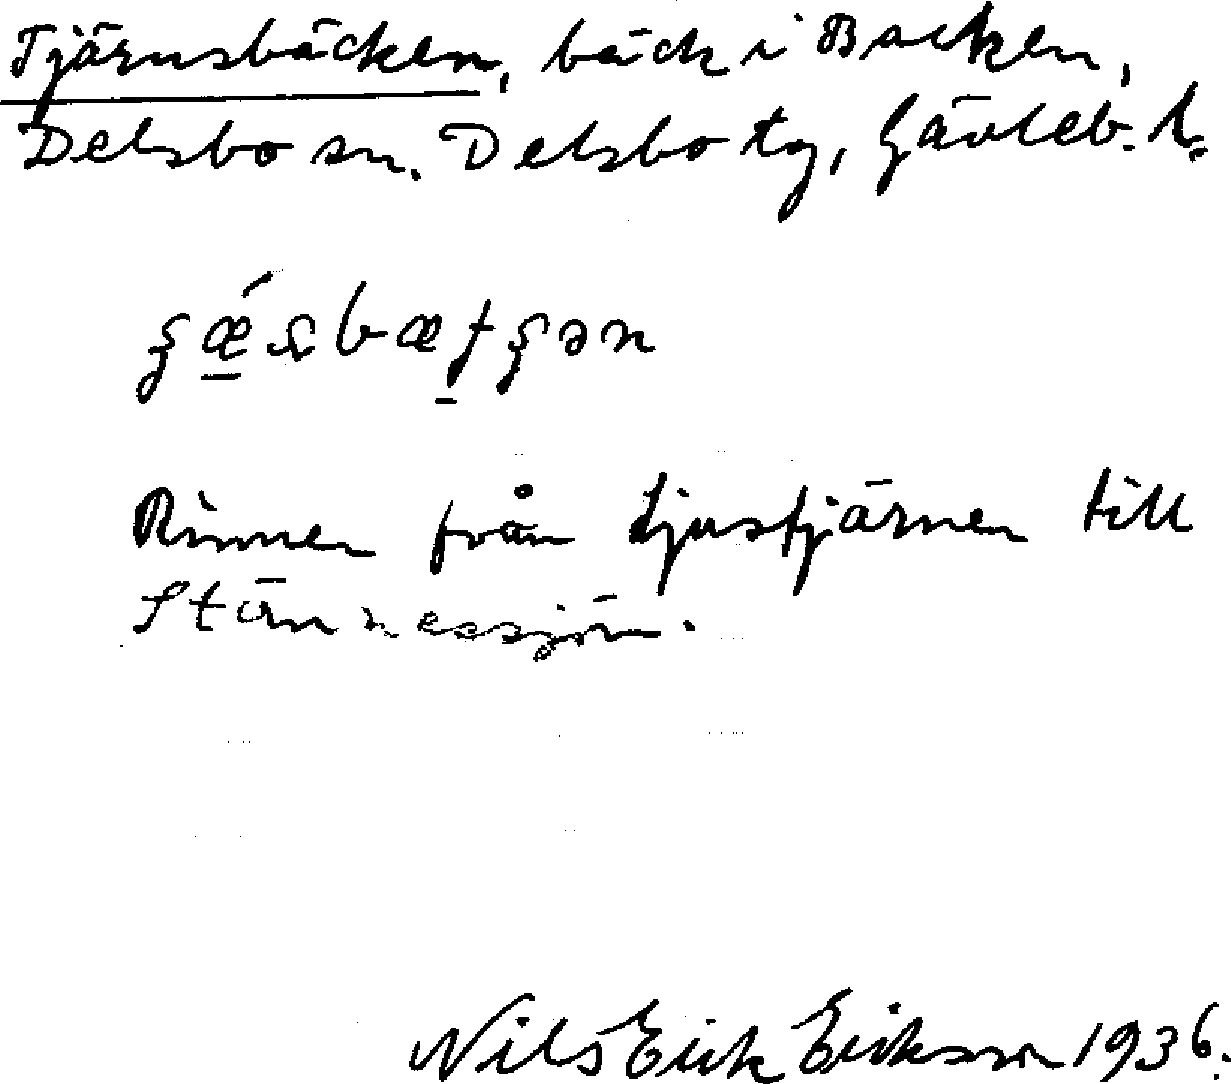 Tjärnsbäcken, bäck i Backen,
Delsbo sn. Delsbo tg, Gävleb. l.
Rinner från Ljustjärnen till
Stännessjön.
Nils Erik Eriksson 1936.